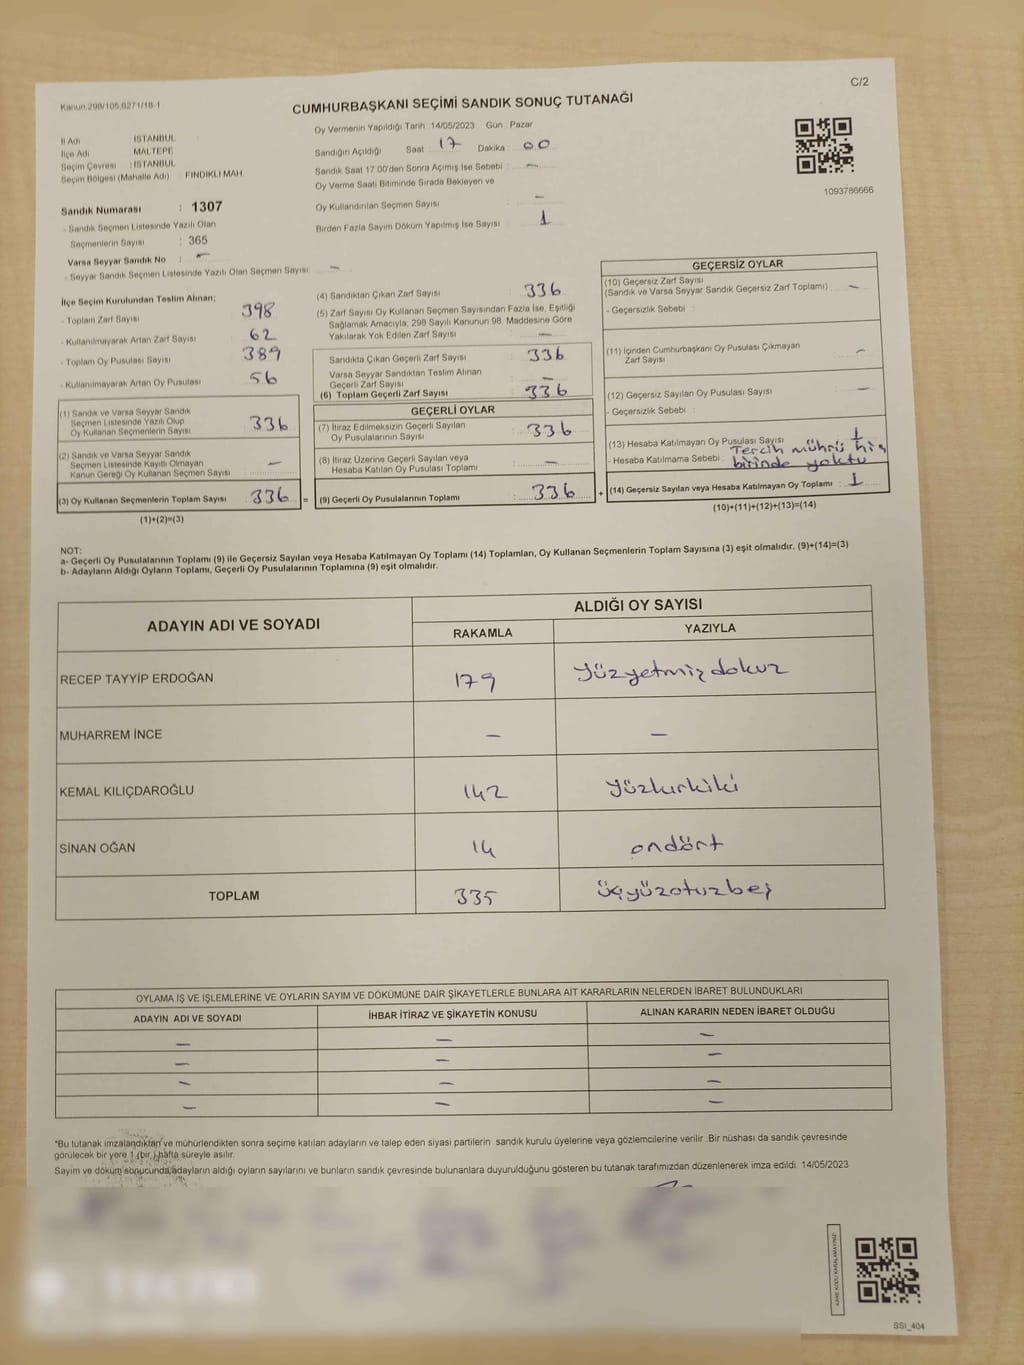 C/2
Kanun.298/105,6271/18-1
CUMHURBAŞKANI SEÇİMİ SANDIK SONUÇ TUTANAĞI
İl Adı İSTANBUL
İlçe Adı MALTEPE
Seçim Çevresi : İSTANBUL
Seçim Bölgesi (Mahalle Adı) FINDIKLI MAH.
Sandık Numarası : 1307
- Sandık Seçmen Listesinde Yazılı Olan
Seçmenlerin Sayısı : 365
Varsa Seyyar Sandık No : -
- Seyyar Sandık Seçmen Listesinde Yazılı Olan Seçmen Sayısı -
Oy Vermenin Yapıldığı Tarih :14/05/2023 Gün : Pazar
Sandığın Açıldığı Saat 17 Dakika 00
Sandık Saat 17:00'den Sonra Açılmış İse Sebebi : -
Oy Verme Saati Bitiminde Sırada Bekleyen ve
Oy Kullandırılan Seçmen Sayısı -
Birden Fazla Sayım Döküm Yapılmış İse Sayısı : 1
1093786666
İlçe Seçim Kurulundan Teslim Alınan;
- Toplam Zarf Sayısı 398
- Kullanılmayarak Artan Zarf Sayısı 62
- Toplam Oy Pusulası Sayısı 389
- Kullanılmayarak Artan Oy Pusulası 56
(1) Sandık ve Varsa Seyyar Sandık
Seçmen Listesinde Yazılı Olup
Oy Kullanan Seçmenlerin Sayısı 336
(2) Sandık ve Varsa Seyyar Sandık
Seçmen Listesinde Kayıtlı Olmayan
Kanun Gereği Oy Kullanan Seçmen Sayısı -
(3) Oy Kullanan Seçmenlerin Toplam Sayısı : 336 =
(1)+(2)=(3)
(4) Sandıktan Çıkan Zarf Sayısı 336
(5) Zarf Sayısı Oy Kullanan Seçmen Sayısından Fazla İse, Eşitliği
Sağlamak Amacıyla, 298 Sayılı Kanunun 98. Maddesine Göre
Yakılarak Yok Edilen Zarf Sayısı : -
Sandıkta Çıkan Geçerli Zarf Sayısı : 336
Varsa Seyyar Sandıktan Teslim Alınan
Geçerli Zarf Sayısı -
(6) Toplam Geçerli Zarf Sayısı : 336
GEÇERLİ OYLAR
(7) İtiraz Edilmeksizin Geçerli Sayılan
Oy Pusulalarının Sayısı : 336
(8) İtiraz Üzerine Geçerli Sayılan veya
Hesaba Katılan Oy Pusulası Toplamı : -
(9) Geçerli Oy Pusulalarının Toplamı : 336 +
GEÇERSİZ OYLAR
(10) Geçersiz Zarf Sayısı
(Sandık ve Varsa Seyyar Sandık Geçersiz Zarf Toplamı) : -
- Geçersizlik Sebebi :
(11) İçinden Cumhurbaşkanı Oy Pusulası Çıkmayan
Zarf Sayısı : -
(12) Geçersiz Sayılan Oy Pusulası Sayısı : -
- Geçersizlik Sebebi :
(13) Hesaba Katılmayan Oy Pusulası Sayısı : 1
- Hesaba Katılmama Sebebi : Tercih mührü hiç
birinde yoktu
(14) Geçersiz Sayılan veya Hesaba Katılmayan Oy Toplamı : 1
(10)+(11)+(12)+(13)=(14)
NOT:
a- Geçerli Oy Pusulalarının Toplamı (9) ile Geçersiz Sayılan veya Hesaba Katılmayan Oy Toplamı (14) Toplamları, Oy Kullanan Seçmenlerin Toplam Sayısına (3) eşit olmalıdır. (9)+(14)=(3)
b- Adayların Aldığı Oyların Toplamı, Geçerli Oy Pusulalarının Toplamına (9) eşit olmalıdır.
ADAYIN ADI VE SOYADI ALDIĞI OY SAYISI
RAKAMLA YAZIYLA
RECEP TAYYİP ERDOĞAN 179 Yüzyetmişdokuz
MUHARREM İNCE - -
KEMAL KILIÇDAROĞLU 142 Yüzkırkiki
SİNAN OĞAN 14 ondört
TOPLAM 335 üçyüzotuzbeş
OYLAMA İŞ VE İŞLEMLERİNE VE OYLARIN SAYIM VE DÖKÜMÜNE DAİR ŞİKAYETLERLE BUNLARA AİT KARARLARIN NELERDEN İBARET BULUNDUKLARI
ADAYIN ADI VE SOYADI İHBAR İTİRAZ VE ŞİKAYETİN KONUSU ALINAN KARARIN NEDEN İBARET OLDUĞU
- - -
- - -
- - -
- - -
*Bu tutanak imzalandıktan ve mühürlendikten sonra seçime katılan adayların ve talep eden siyasi partilerin sandık kurulu üyelerine veya gözlemcilerine verilir .Bir nüshası da sandık çevresinde
görülecek bir yere 1 (bir ) hafta süreyle asılır.
Sayım ve döküm sonucunda,adayların aldığı oyların sayılarını ve bunların sandık çevresinde bulunanlara duyurulduğunu gösteren bu tutanak tarafımızdan düzenlenerek imza edildi. 14/05/2023
KARE KODU KARALAMAYINIZ
SSI_404